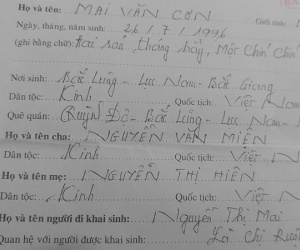 Họ và tên: MAI VĂN CƠN Giới tính:
Ngày, tháng, năm sinh: 26/7/1996
(ghi bằng chữ): Hai sáu, tháng bảy, Một chín chín
Nơi sinh: Bắc Lũng - Lục Nam - Bắc Giang
Dân tộc: Kinh Quốc tịch: Việt N
Quê quán: Quỳnh Độ - Bắc Lũng - Lục Nam -
Họ và tên cha: NGUYỄN VĂN MIÊN
Dân tộc: Kinh Quốc tịch: Việt N
Họ và tên mẹ: NGUYỄN THỊ HIÊN
Dân tộc: Kinh Quốc tịch: Việt N
Họ và tên người đi khai sinh: Nguyễn Thị Mai
Quan hệ với người được khai sinh: Là Chị